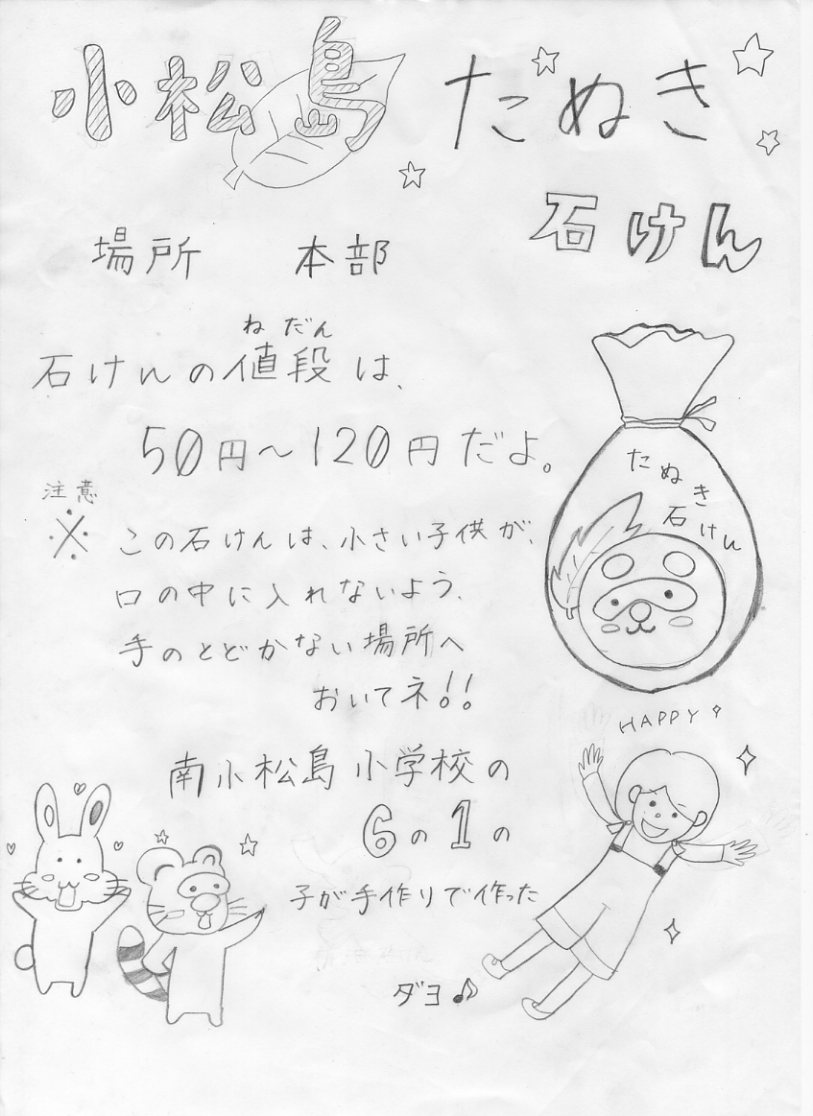 小松島 たぬき
石けん
場所 本部
ねだん
石けんの値段は、
50円～120円だよ。
たぬき
石けん
注意
※ この石けんは、小さい子供が、
口の中に入れないよう、
手のとどかない場所へ
おいてネ!!
HAPPY
南小松島小学校の
6の1の
子が手作りで作った
ダヨ♪